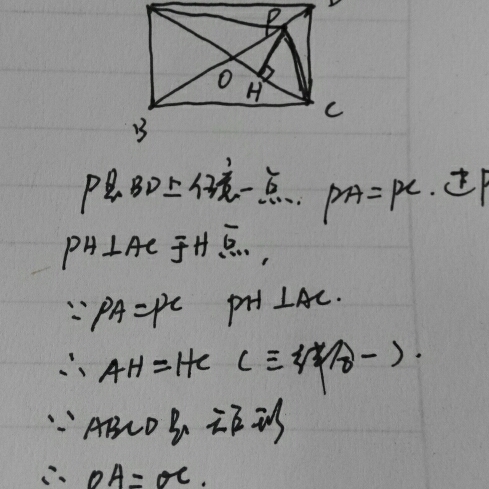 P
O
H
B
C
P是BD上任意一点. PA=PC. 过P
PH⊥AC于H点,
∵PA=PC PH⊥AC.
∴AH=HC (三线合一).
∵ABCD是矩形
∴OA=OC.